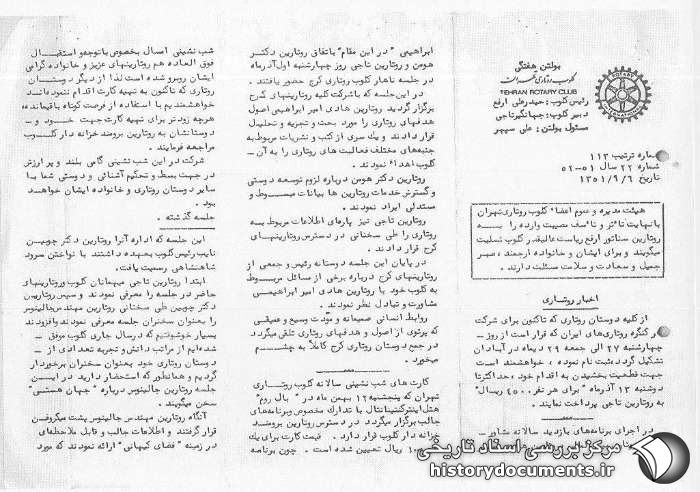 بولتن هفتگی
کلوب روتاری طهران
TEHRAN ROTARY CLUB
رئیس کلوب: حیدرعلی ارفع
دبیر کلوب: جهانگیر تاجی
مسئول بولتن: علی سپهر
شماره ترتیب ۱۱۳
شماره ۲۲ سال ۵۱-۵۲
تاریخ ۱۳۵۱/۹/۶
هیئت مدیره و عموم اعضاء کلوب روتاری تهران
با نهایت تاثر و تاسف مصیبت وارده را به
روتارین سناتور ارفع ریاست عالیقدر کلوب تسلیت
میگویند و برای ایشان و خانواده ارجمند، صبر
جمیل و سعادت و سلامت مسئلت دارند.
اخبار روتاری
از کلیه دوستان روتاری که تاکنون برای شرکت
در کنگره روتاری‌های ایران که قرار است از روز -
چهارشنبه ۲۷ الی جمعه ۲۹ دیماه در آبادان
تشکیل گردد ثبت نام نموده، خواهشمند است
جهت قطعیت بخشیدن به اقدام خود، حداکثر تا
دوشنبه ۱۳ آذرماه "برای هر نفر ۴۵۰۰ ریال"
به روتارین تاجی پرداخت نمایند.
در اجرای برنامه‌های بازدید سالانه
ابراهیمی "در این مقام" باتفاق روتارین دکتر
هومن و روتارین تاجی روز چهارشنبه اول آذرماه
در جلسه ناهار کلوب روتاری کرج حضور یافتند.
در این جلسه که با شرکت کلیه روتارینهای کرج
برگزار گردید روتارین هادی امیر ابراهیمی اصول
هدفهای روتاری را مورد بحث و تجزیه و تحلیل
قرار دادند و یک سری از کتب و نشریات مربوط به
جنبه‌های مختلف فعالیت های روتاری را به آن -
کلوب اهداء نمودند.
روتارین دکتر هومن درباره لزوم توسعه دوستی
و گسترش خدمات روتارین ها بیانات مبسوط و
مستدلی ایراد نمودند.
روتارین تاجی نیز پاره‌ای اطلاعات مربوط به
روتاری را طی سخنانی در دسترس روتارینهای
کرج قرار دادند.
در پایان این جلسه دوستانه رئیس و جمعی از
روتارینهای کرج درباره برخی از مسائل مربوط
به کلوب خود با روتارین هادی امیر ابراهیمی
مشاوره و تبادل نظر نمودند.
روابط انسانی صمیمانه و مودت وسیع و عمیقی
که پرتوی از اصول و هدفهای روتاری تلقی میگردد
در جمع دوستان روتاری کرج کاملاً به چشم
میخورد.
کارت های شب نشینی سالانه کلوب روتاری
تهران که پنجشنبه ۱۲ بهمن ماه در "بال روم"
هتل اینترکنتیننتال با تدارک مخصوص و برنامه‌های
جالب برگزار میگردد در دسترس روتارین برومند
خزانه دار کلوب قرار دارد. قیمت کارت برای یک
ریال تعیین شده است. چون برنامه
شب نشینی امسال بخصوص با توجه و استقبال
فوق العاده هم روتارینهای عزیز و خانواده گرامی
ایشان روبرو شده است لذا از دیگر دوستان
روتاری که تاکنون به تهیه کارت اقدام ننموده‌اند
خواهشمندیم با استفاده از فرصت کوتاه باقیمانده،
هرچه زودتر برای تهیه کارت جهت خود و -
دوستانشان به روتارین برومند خزانه دار کلوب
مراجعه فرمایند.
شرکت در این شب نشینی گامی بلند و پر ارزش
در جهت بسط و تحکیم آشنائی و دوستی شما با
سایر دوستان روتاری و خانواده ایشان خواهد
بود.
جلسه گذشته.
این جلسه که اداره آنرا روتارین دکتر چوبین
نایب رئیس کلوب بعهده داشتند با نواختن سرود
شاهنشاهی رسمیت یافت.
ابتدا روتارین تاجی میهمانان کلوب و روتارینهای
حاضر در جلسه را معرفی نمودند و سپس روتارین
دکتر چوبین طی سخنانی روتارین مهندس جالینوس
را بعنوان سخنران جلسه معرفی نمودند و افزودند
بسیار خوشوقتیم که در سال جاری کلوب موفق -
شده‌ایم از مراتب دانش و تجربه تعدادی از -
دوستان روتاری خود بعنوان سخنران برخوردار
گردیم و همانطور که استحضار دارید در این
جلسه روتارین جالینوس درباره "جهان هستی"
سخن میگویند.
آنگاه روتارین مهندس جالینوس پشت میکروفن
قرار گرفتند و اطلاعات جالب و قابل ملاحظه‌ای
در زمینه "فضای کیهانی" ارائه نمودند که مورد
مرکز بررسی اسناد تاریخی
historydocuments.ir